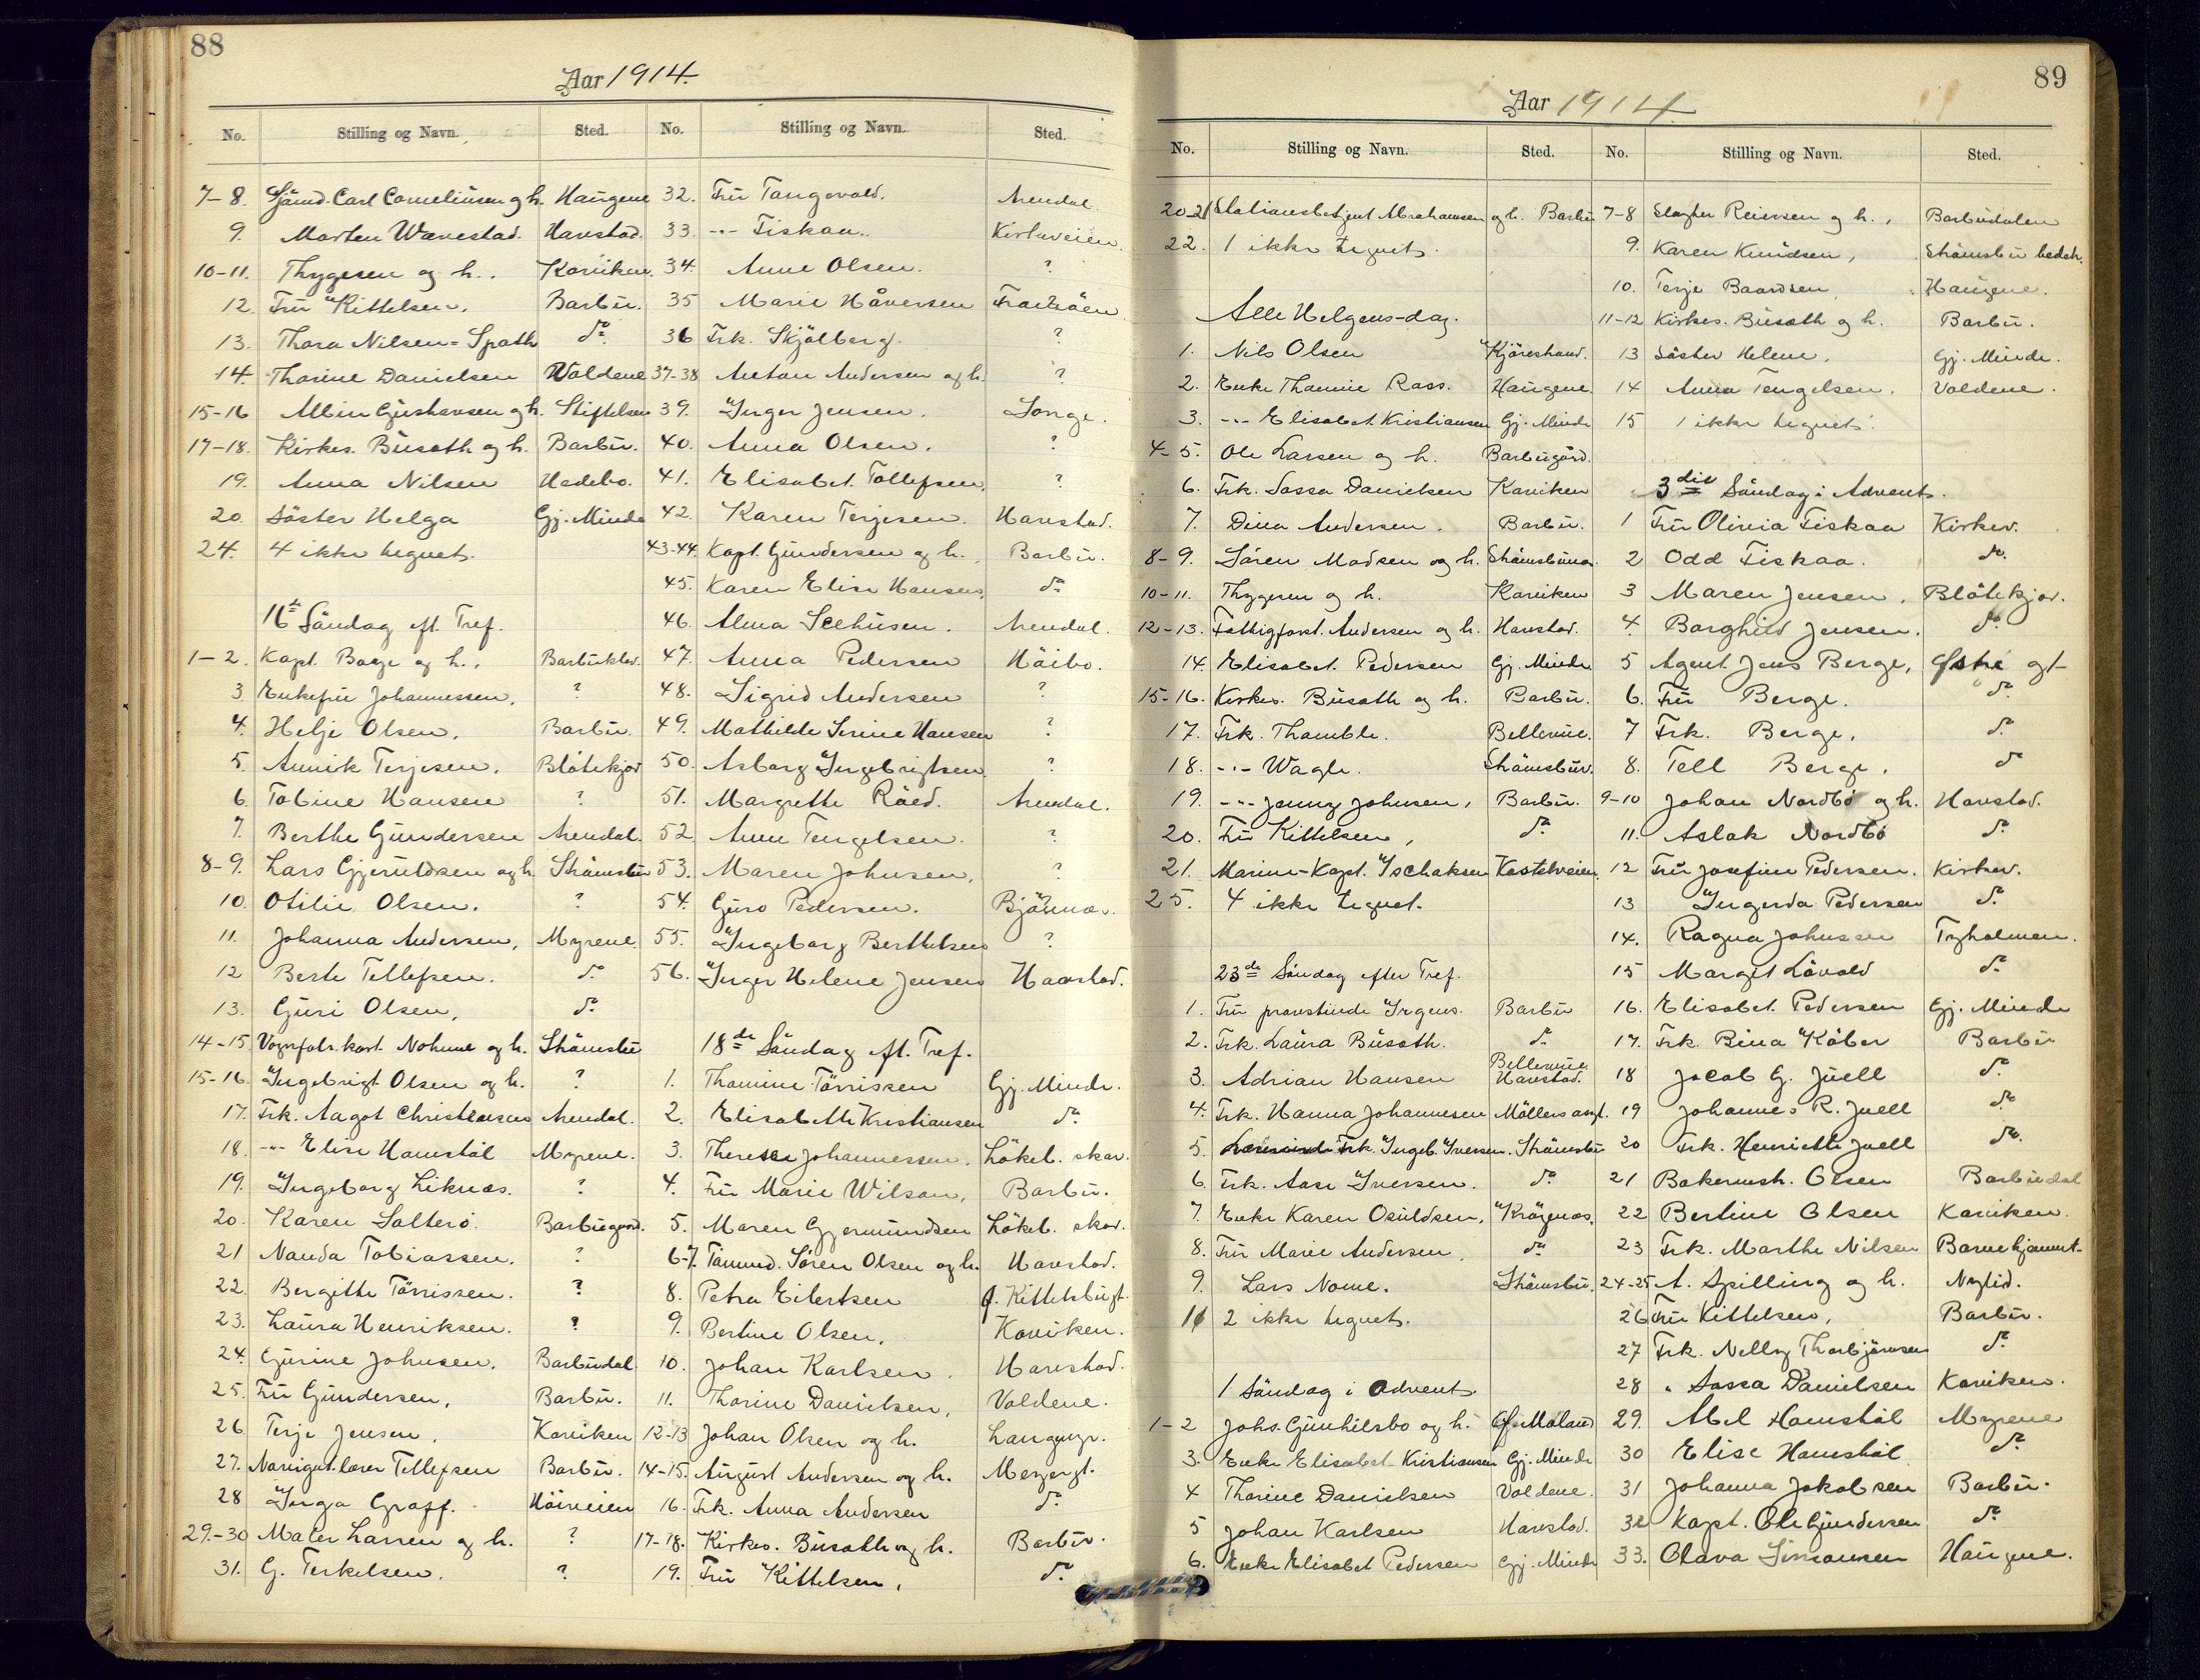 88
Aar 1914.
No. Stilling og Navn. Sted.
7-8. Carl Corneliusen og h. Haugene
9. Morten Wævestad. Havstad.
10-11. Thygesen og h. Kaviken.
12. Fru Kittelsen. Barbu.
13. Thora Nilsen-Spath do
14. Thorine Danielsen Voldene
15-16 Albin Gustavsen og h. Stiftelsen
17-18. Kirkes. Busath og h. Barbu.
19. Anna Nilsen Hedebo.
20. Söster Helga Gj. Minde
24. 4 ikke tegnet.
16de Söndag eft. Tref.
1-2. Kapt. Boye og h. Barbuklev.
3 Enkefru Johannessen. ?
4. Helje Olsen. Barbu.
5. Annik Terjesen. Blötekjær
6. Tobine Hansen ?
7. Berthe Gundersen Arendal.
8-9. Lars Gjeruldsen og h. Strömsbu
10. Otilie Olsen. ?
11. Johanna Andersen, Myrene.
12 Berte Tellefsen. do
13. Guri Olsen, do
14-15. Nohme og h. Strömsbu
15-16. Ingebrigt Olsen og h. ?
17. Frk. Aagot Christensen Arendal.
18. -"- Elise Hamstöl Myrene.
19. Ingeborg Liknæs. ?
20. Karen Salterö. Barbugaard.
21 Nanda Tobiassen. ?
22. Bergitte Törrissen. ?
23. Laura Henriksen. ?
24. Gurine Johnsen. Barbudal
25. Fru Gundersen, Barbu.
26 Terje Jensen. Kaviken
27. Navigat. lærer Tellefsen Barbu.
28 Inga Graff. Höiveien
29-30 Maler Larsen og h. ?
31. G. Terkelsen. ?
No. Stilling og Navn. Sted.
32. Fru Tangevald. Arendal.
33. -"- Fiskaa. Kirkeveien.
34. Anne Olsen. ?
35 Marie Håversen
36 Frk. Skjölberg. ?
37-38 Anton Andersen og h. ?
39. Inger Jensen. Songe.
40. Anna Olsen. ?
41. Elisabet Tollefsen. ?
42. Karen Terjesen. Havstad.
43-44. Kapt. Gundersen og h. Barbu.
45. Karen Elise Hansen. do
46. Alma Seehusen. Arendal.
47. Anna Pedersen Höibo.
48. Sigrid Andersen ?
49. Mathilde Serine Hansen ?
50. Asborg Ingebrigtsen. ?
51. Margrethe Röed. Arendal.
52. Anne Tengelsen. ?
53. Maren Johnsen. ?
54. Guro Pedersen.
55. Ingeborg Berthelsen ?
56. Inger Helene Jensen Havstad.
18de Söndag eft. Tref.
1. Thomine Törrissen Gj. Minde.
2. Elisabeth Kristiansen do
3. Therese Johannessen. Lökeb. skar.
4. Fru Marie Wilson, Barbu.
5. Maren Gjermundsen Lökeb. skar.
6-7. Tömmd. Sören Olsen og h. Havstad.
8. Petra Eilertsen Ø. Kittelsbugt.
9. Bertine Olsen. Kaviken.
10. Johan Karlsen. Havstad.
11. Thorine Danielsen, Voldene.
12-13 Johan Olsen og h. Langmyr.
14-15. August Andersen og h.
16. Frk. Anna Andersen do
17-18. Kirkes. Busath og h. Barbu.
19. Fru Kittelsen, do
89
Aar 1914
No. Stilling og Navn. Sted.
20-21 Stationsbetjent Abrahamsen og h. Barbu
22. 1 ikke tegnet.
Alle Helgens-dag.
1. Nils Olsen Kjörestrand.
2. Enke Thomine Rass. Haugene.
3. -"- Elisabet Kristiansen Gj. Minde
4-5. Ole Larsen og h. Barbugård.
6. Frk. Sassa Danielsen Kaviken
7. Dina Andersen. Barbu.
8-9. Sören Madsen og h.
10-11. Thygesen og h. Kaviken
12-13. Fattigforst. Andersen og h. Havstad.
14. Elisabet Pedersen Gj. Minde
15-16. Kirkes. Busath og h. Barbu.
17. Frk. Thamble. Bellevue.
18. -"- Wagle. Strömsbuv.
19. -"- Jenny Johnsen, Barbu.
20. Fru Kittelsen, do
21. Marine-Kapt. Ischaksen Kastelveien.
25. 4 ikke tegnet.
23de Söndag efter Tref.
1. Fru provstinde Irgens. Barbu
2. Frk. Laura Busath. do
3. Adrian Hansen Bellevue. Havstad.
4. Frk. Hanna Johannesen Möllers asyl.
5. Lærerinde Frk. Ingeb. Iversen. Strömsbu
6. Frk. Aase Iversen. do
7. Enke Karen Osuldsen, Krögenes.
8. Fru Marie Andersen. do
9. Lars Nome. Strömsbu.
11 2 ikke tegnet.
1 Söndag i Advent.
1-2 Johs. Gunhilsbo og h. Ø. Moland
3. Enke Elisabet Kristiansen Gj. Minde
4 Thorine Danielsen Voldene.
5 Johan Karlsen Havstad.
6. Enke Elisabet Pedersen Gj. Minde
No. Stilling og Navn. Sted.
7-8 Slagter Reiersen og h. Barbudalen
9. Karen Knudsen, Strömsbu bedeh.
10. Terje Baardsen Haugene.
11-12 Kirkes. Busath og h. Barbu.
13 Söster Helene. Gj. Minde.
14 Anna Tengelsen. Voldene.
15 1 ikke tegnet.
3die Söndag i Advent.
1 Fru Olivia Fiskaa Kirkev.
2 Odd Fiskaa. do
3 Maren Jensen, Blötekjær.
4. Borghild Jensen. do
5 Agent Jens Berge, Østre gt
6. Fru Berge. do
7 Frk. Berge. do
8. Tell Berge. do
9-10 Johan Nordbö og h. Havstad.
11. Aslak Nordbö do
12 Fru Josefine Pedersen. Kirkev.
13 Ingerda Pedersen do
14. Ragna Johnsen Tyholmen.
15 Margit Lövold do
16. Elisabet Pedersen Gj. Minde
17. Frk. Rina Köber Barbu
18 Jacob G. Juell do
19 Johannes R. Juell do
20 Frk. Henriette Juell do
21 Bakermstr. Olsen Barbudal
22 Bertine Olsen Kaviken.
23 Frk. Marthe Nilsen
24-25 A. Spilling og h. Nylid.
26 Fru Kittelsen, Barbu.
27 Frk. Nelly Thorbjörnsen do
28 " Sassa Danielsen Kaviken.
29. Abel Hamstöl Myrene
30 Elise Hamstöl do
31 Johanna Jakobsen Barbu.
32 Kapt. Ole Gundersen do
33. Olava Simonsen Haugene.